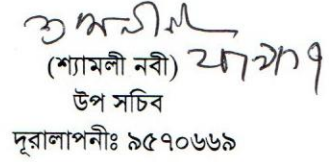 (শ্যামলী নবী)
উপ সচিব
দূরালাপনীঃ ৯৫৭০৬৬৯